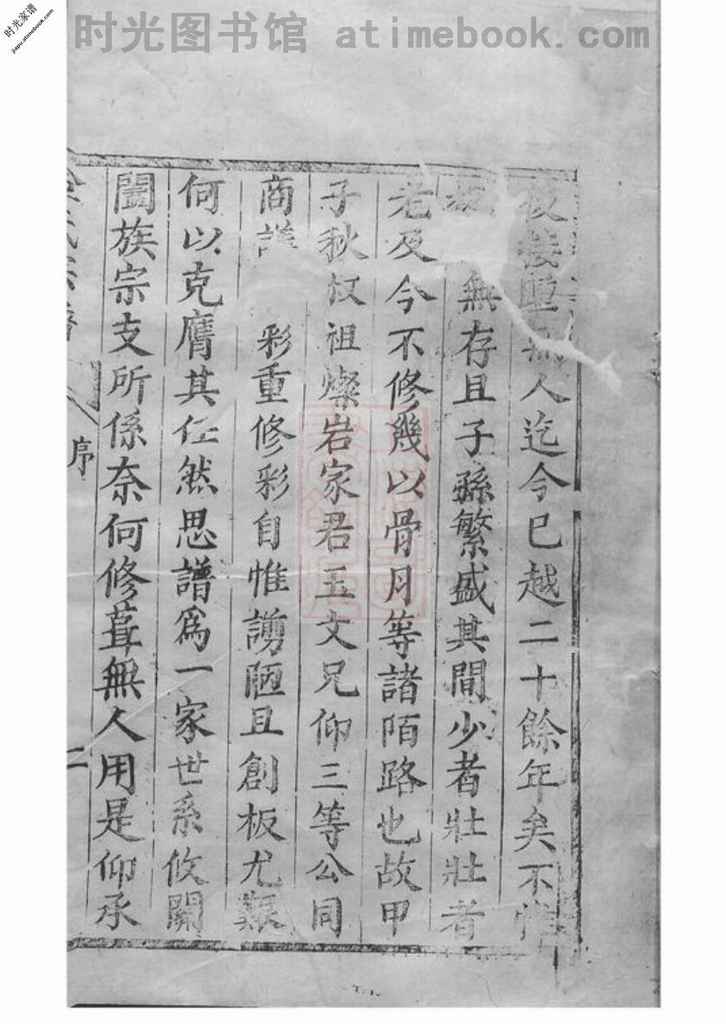 时光图书馆 atimebook.com
时光家谱
jiapu.atimebook.com
後接踵無人迄今已越二十餘年矣不惟
無存且子孫繁盛其間少者壯壯者
老及今不修幾以骨月等諸陌路也故甲
子秋叔祖燦岩家君玉文兄仰三等公同
商議 彩重修彩自惟譾陋且創板尤艱
何以克膺其任然思譜為一家世系攸關
闔族宗支所係奈何修葺無人用是仰承
氏宗譜 序 二